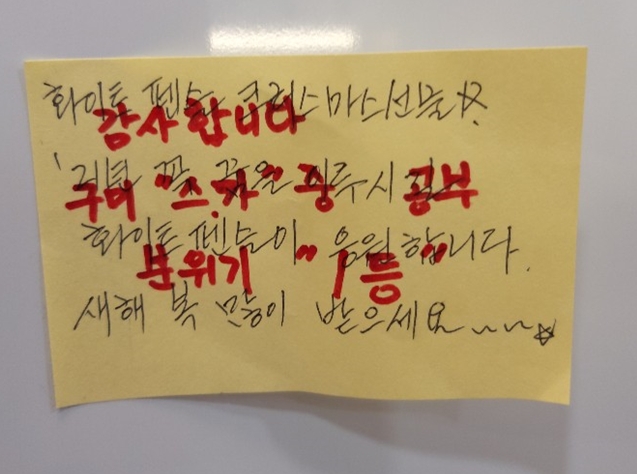 화이트 펜슬 크리스마스선물☆
감사합니다
꼭 꿈을 이루시길
구미 "스.카" 중 공부
화이트펜슬이 응원합니다.
분위기 "1등"
새해 복 많이 받으세요~~~☆